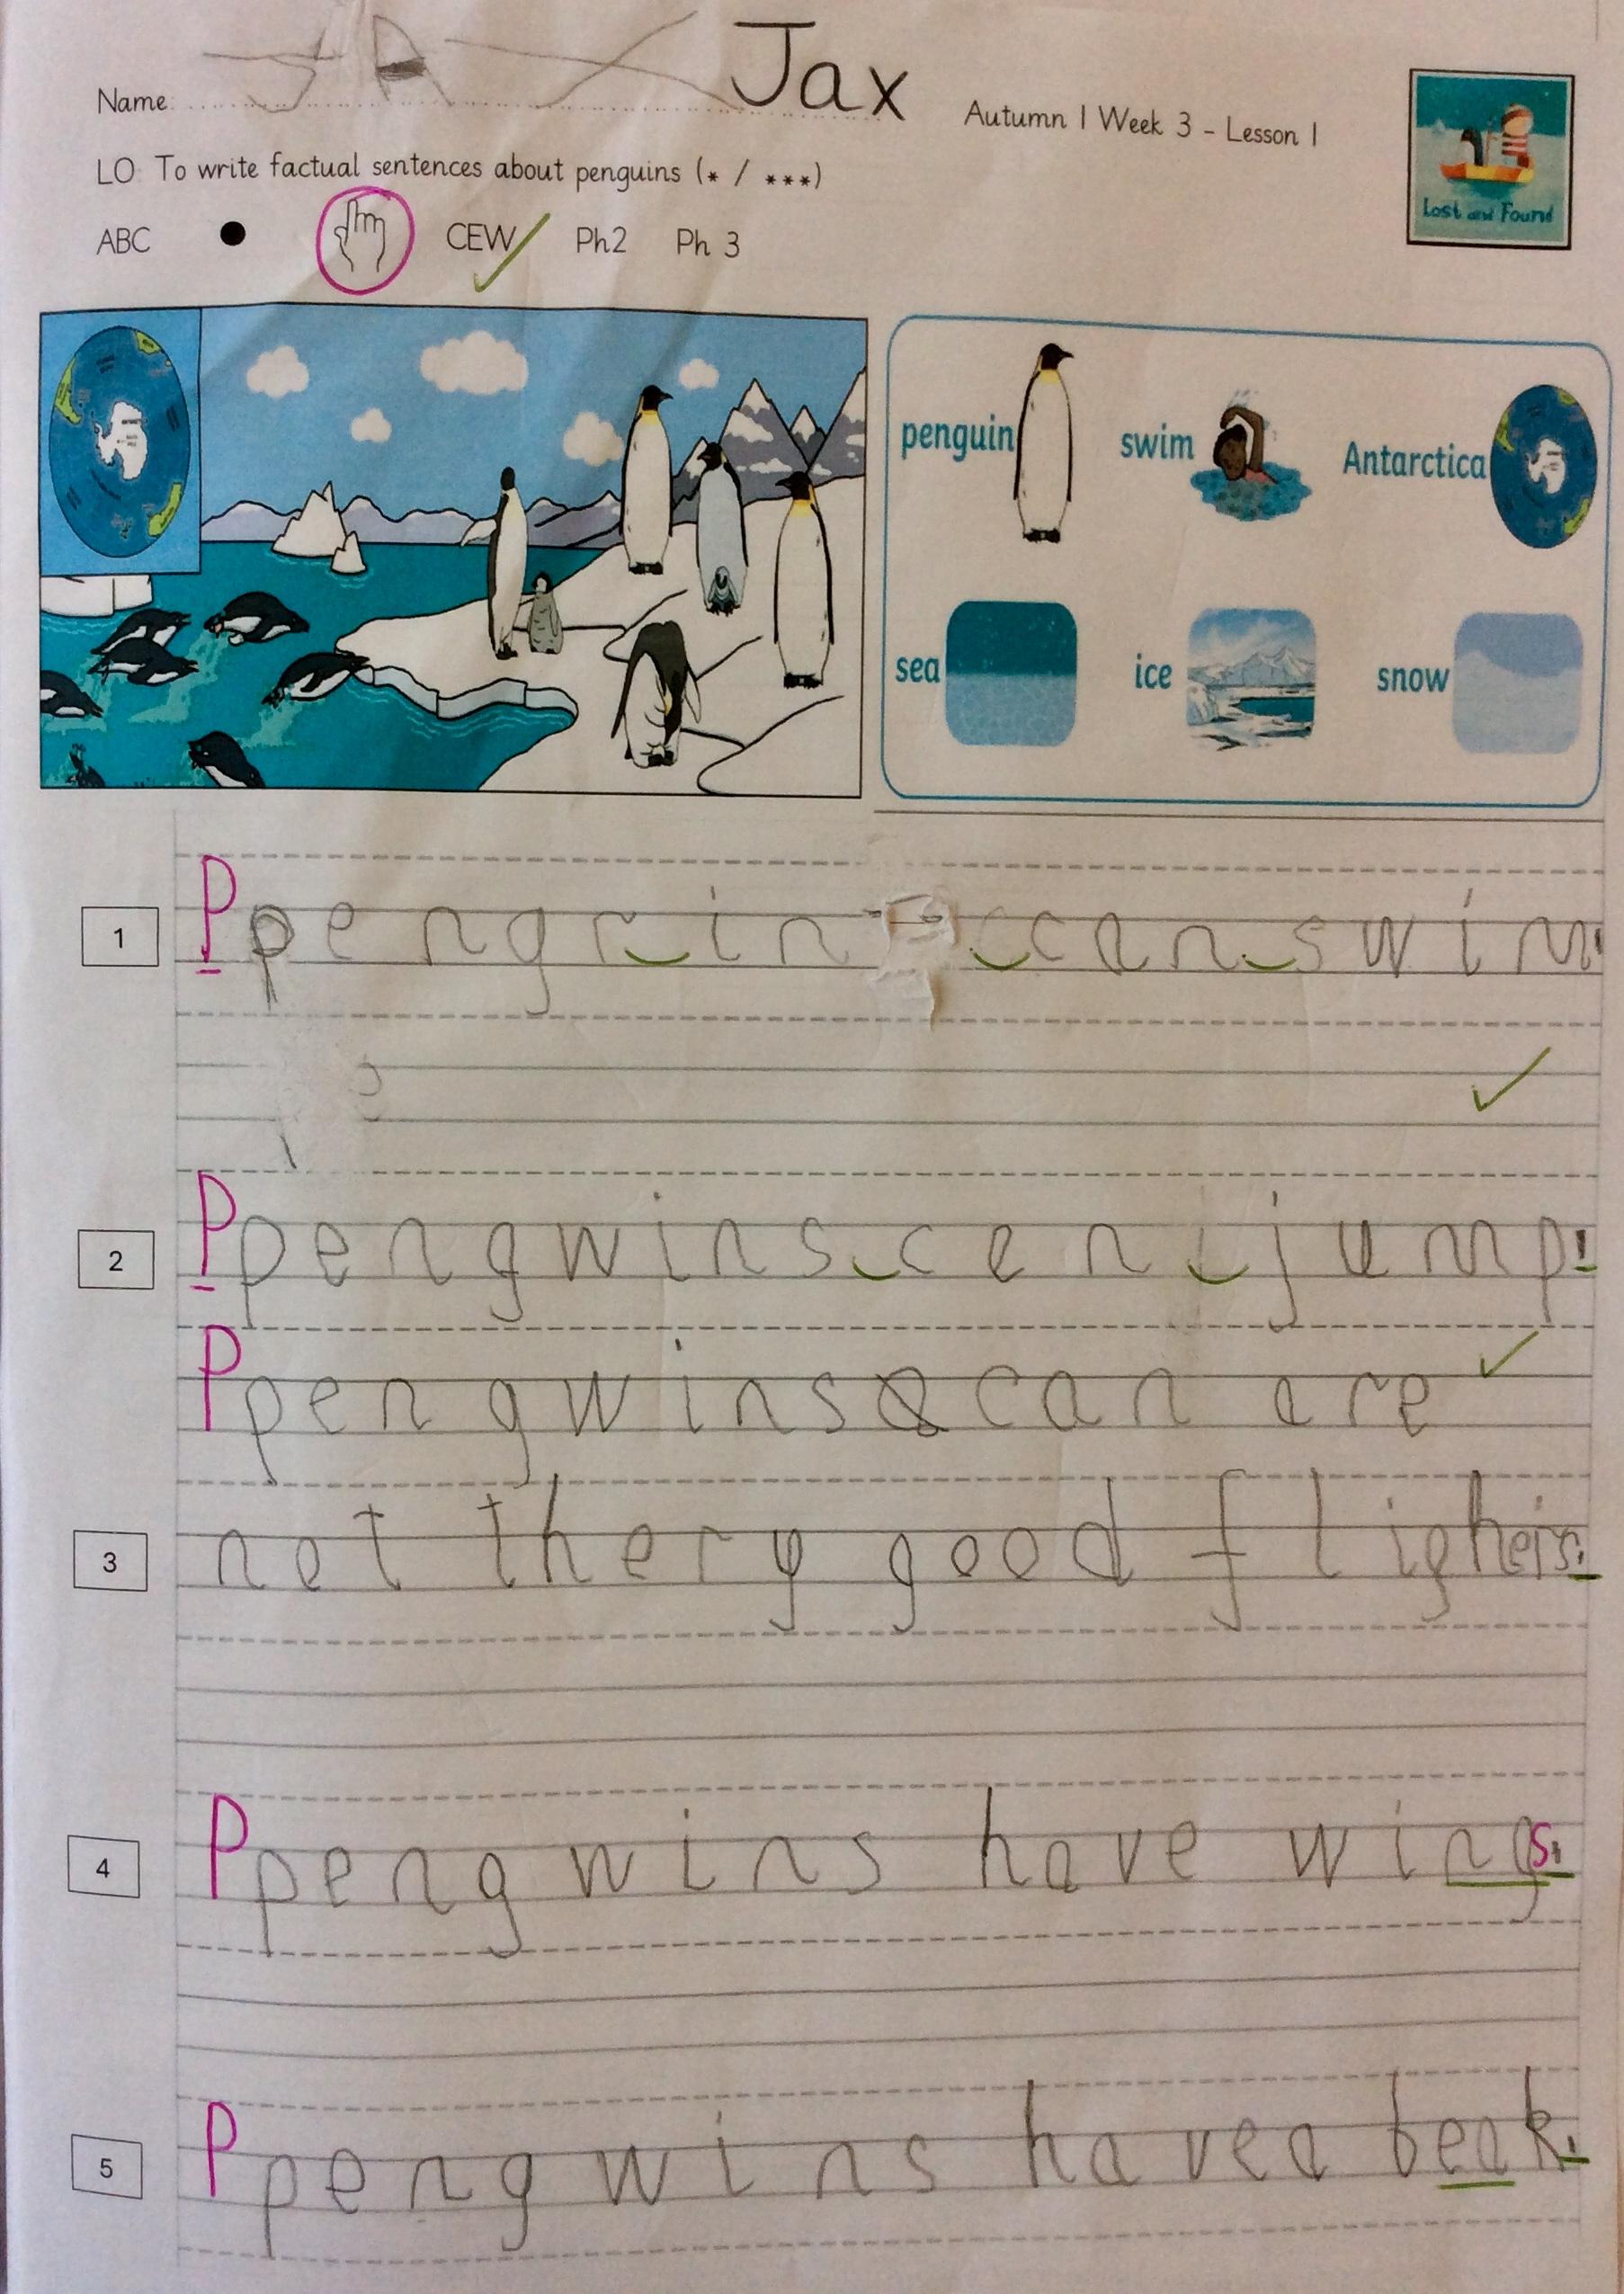 JAX Jax
Name
Autumn 1 Week 3 - Lesson 1
LO: To write factual sentences about penguins (* / ***)
ABC CEW Ph2 Ph 3
Lost and Found
penguin swim Antarctica
sea ice snow
1 P pengrin can swim.
2 P pengwins cen jump.
P pengwins can are
3 not thery good fligheis.
4 P pengwins have wings.
5 P pengwins have a beak.